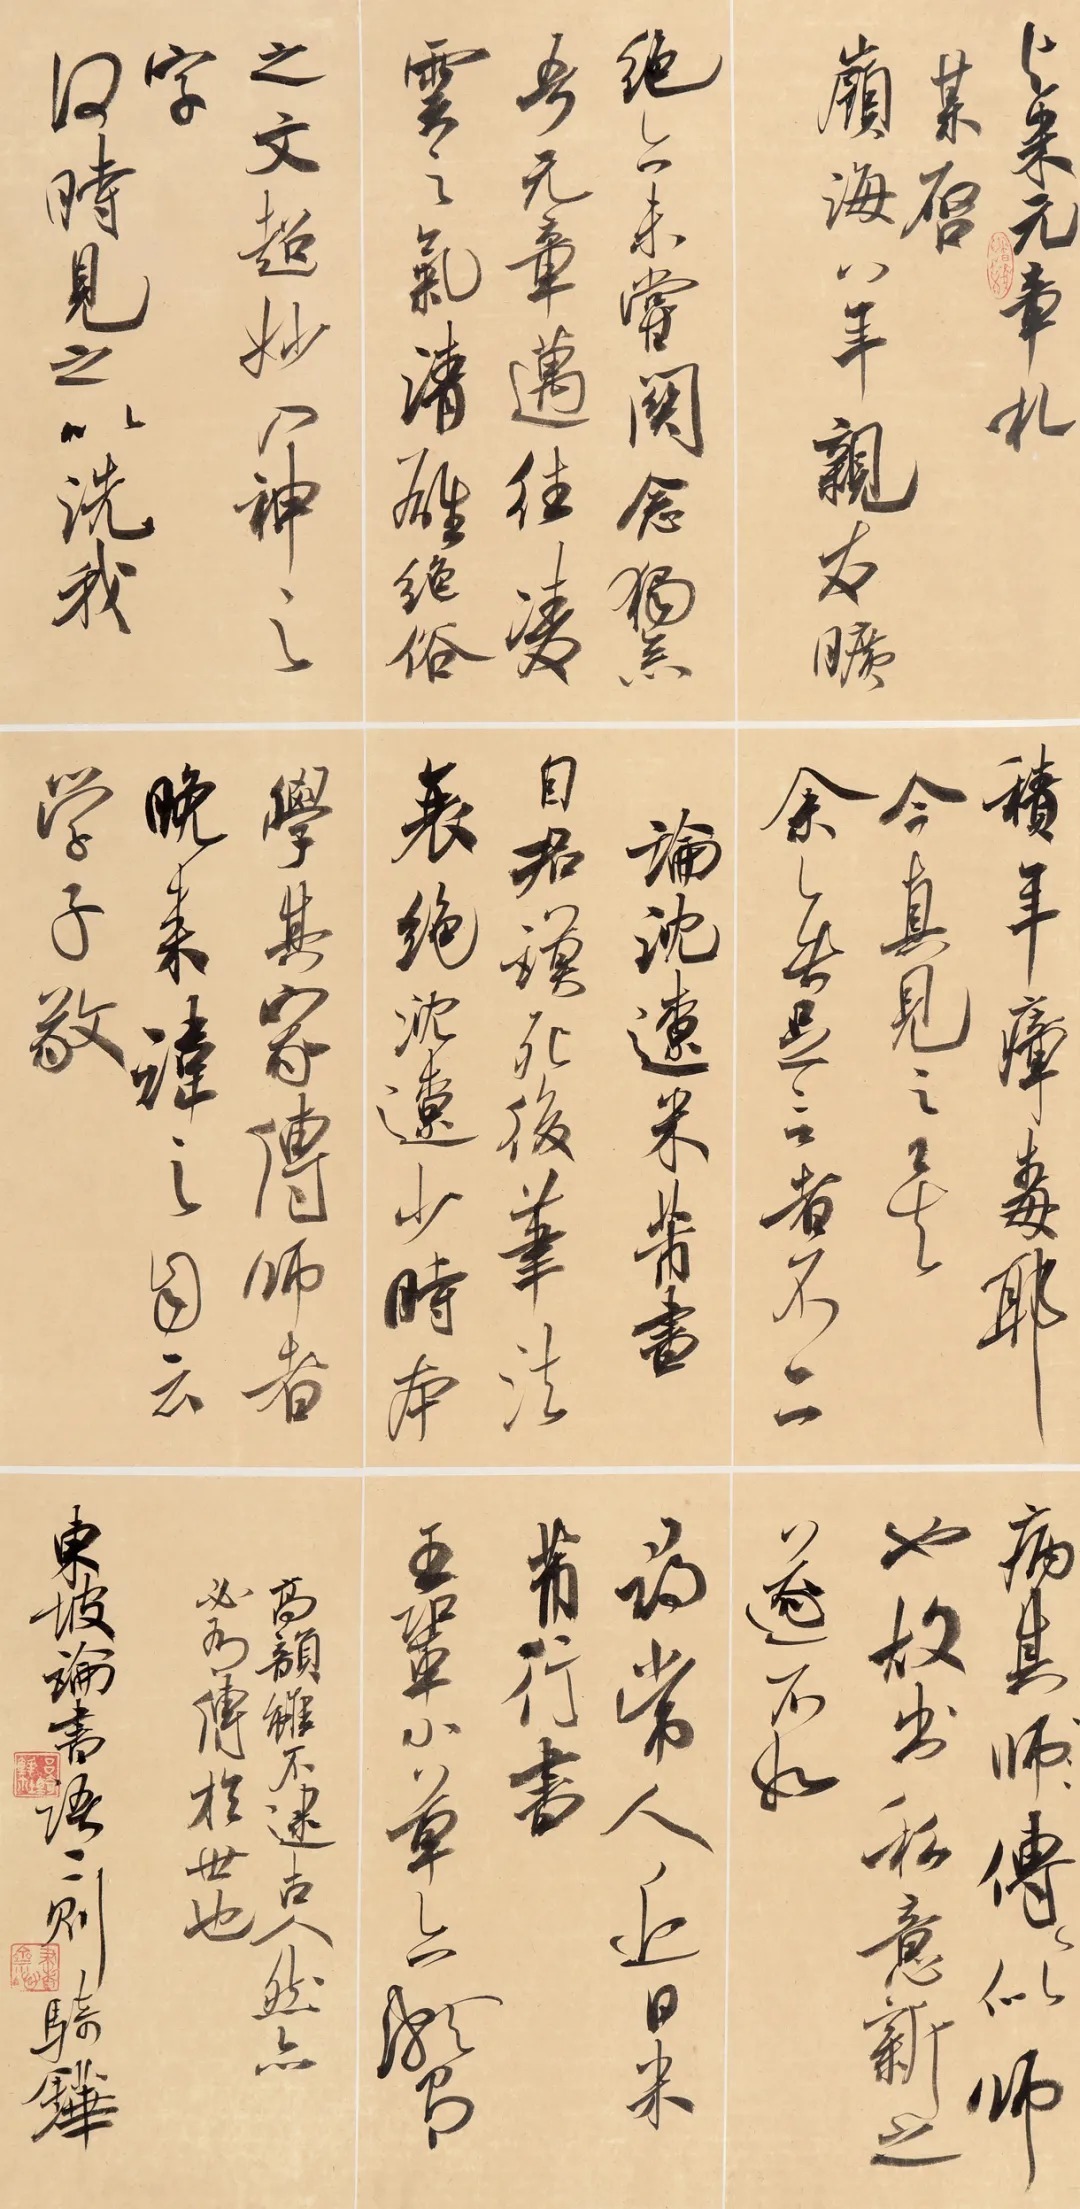 与米元章札
某啓
嶺海八年親友曠
絶亦未嘗關念獨念
吾元章邁往凌
雲之氣清雄絶俗
之文超妙入神之
字
何時見之以洗我
積年瘴毒耶
今真見之矣
餘無足言者不二
論沈遼米芾書
自君謨死後筆法
衰絶沈遼少時本
學其家傳師者
晚来諱之自云
学子敬
病其師傳似師
也故出私意新之
遂不如
尋常人近日米
芾行書
王鞏小草亦頗有
高韻雖不逮古人然亦
必有傳於世也
東坡論書語二則騎鏵